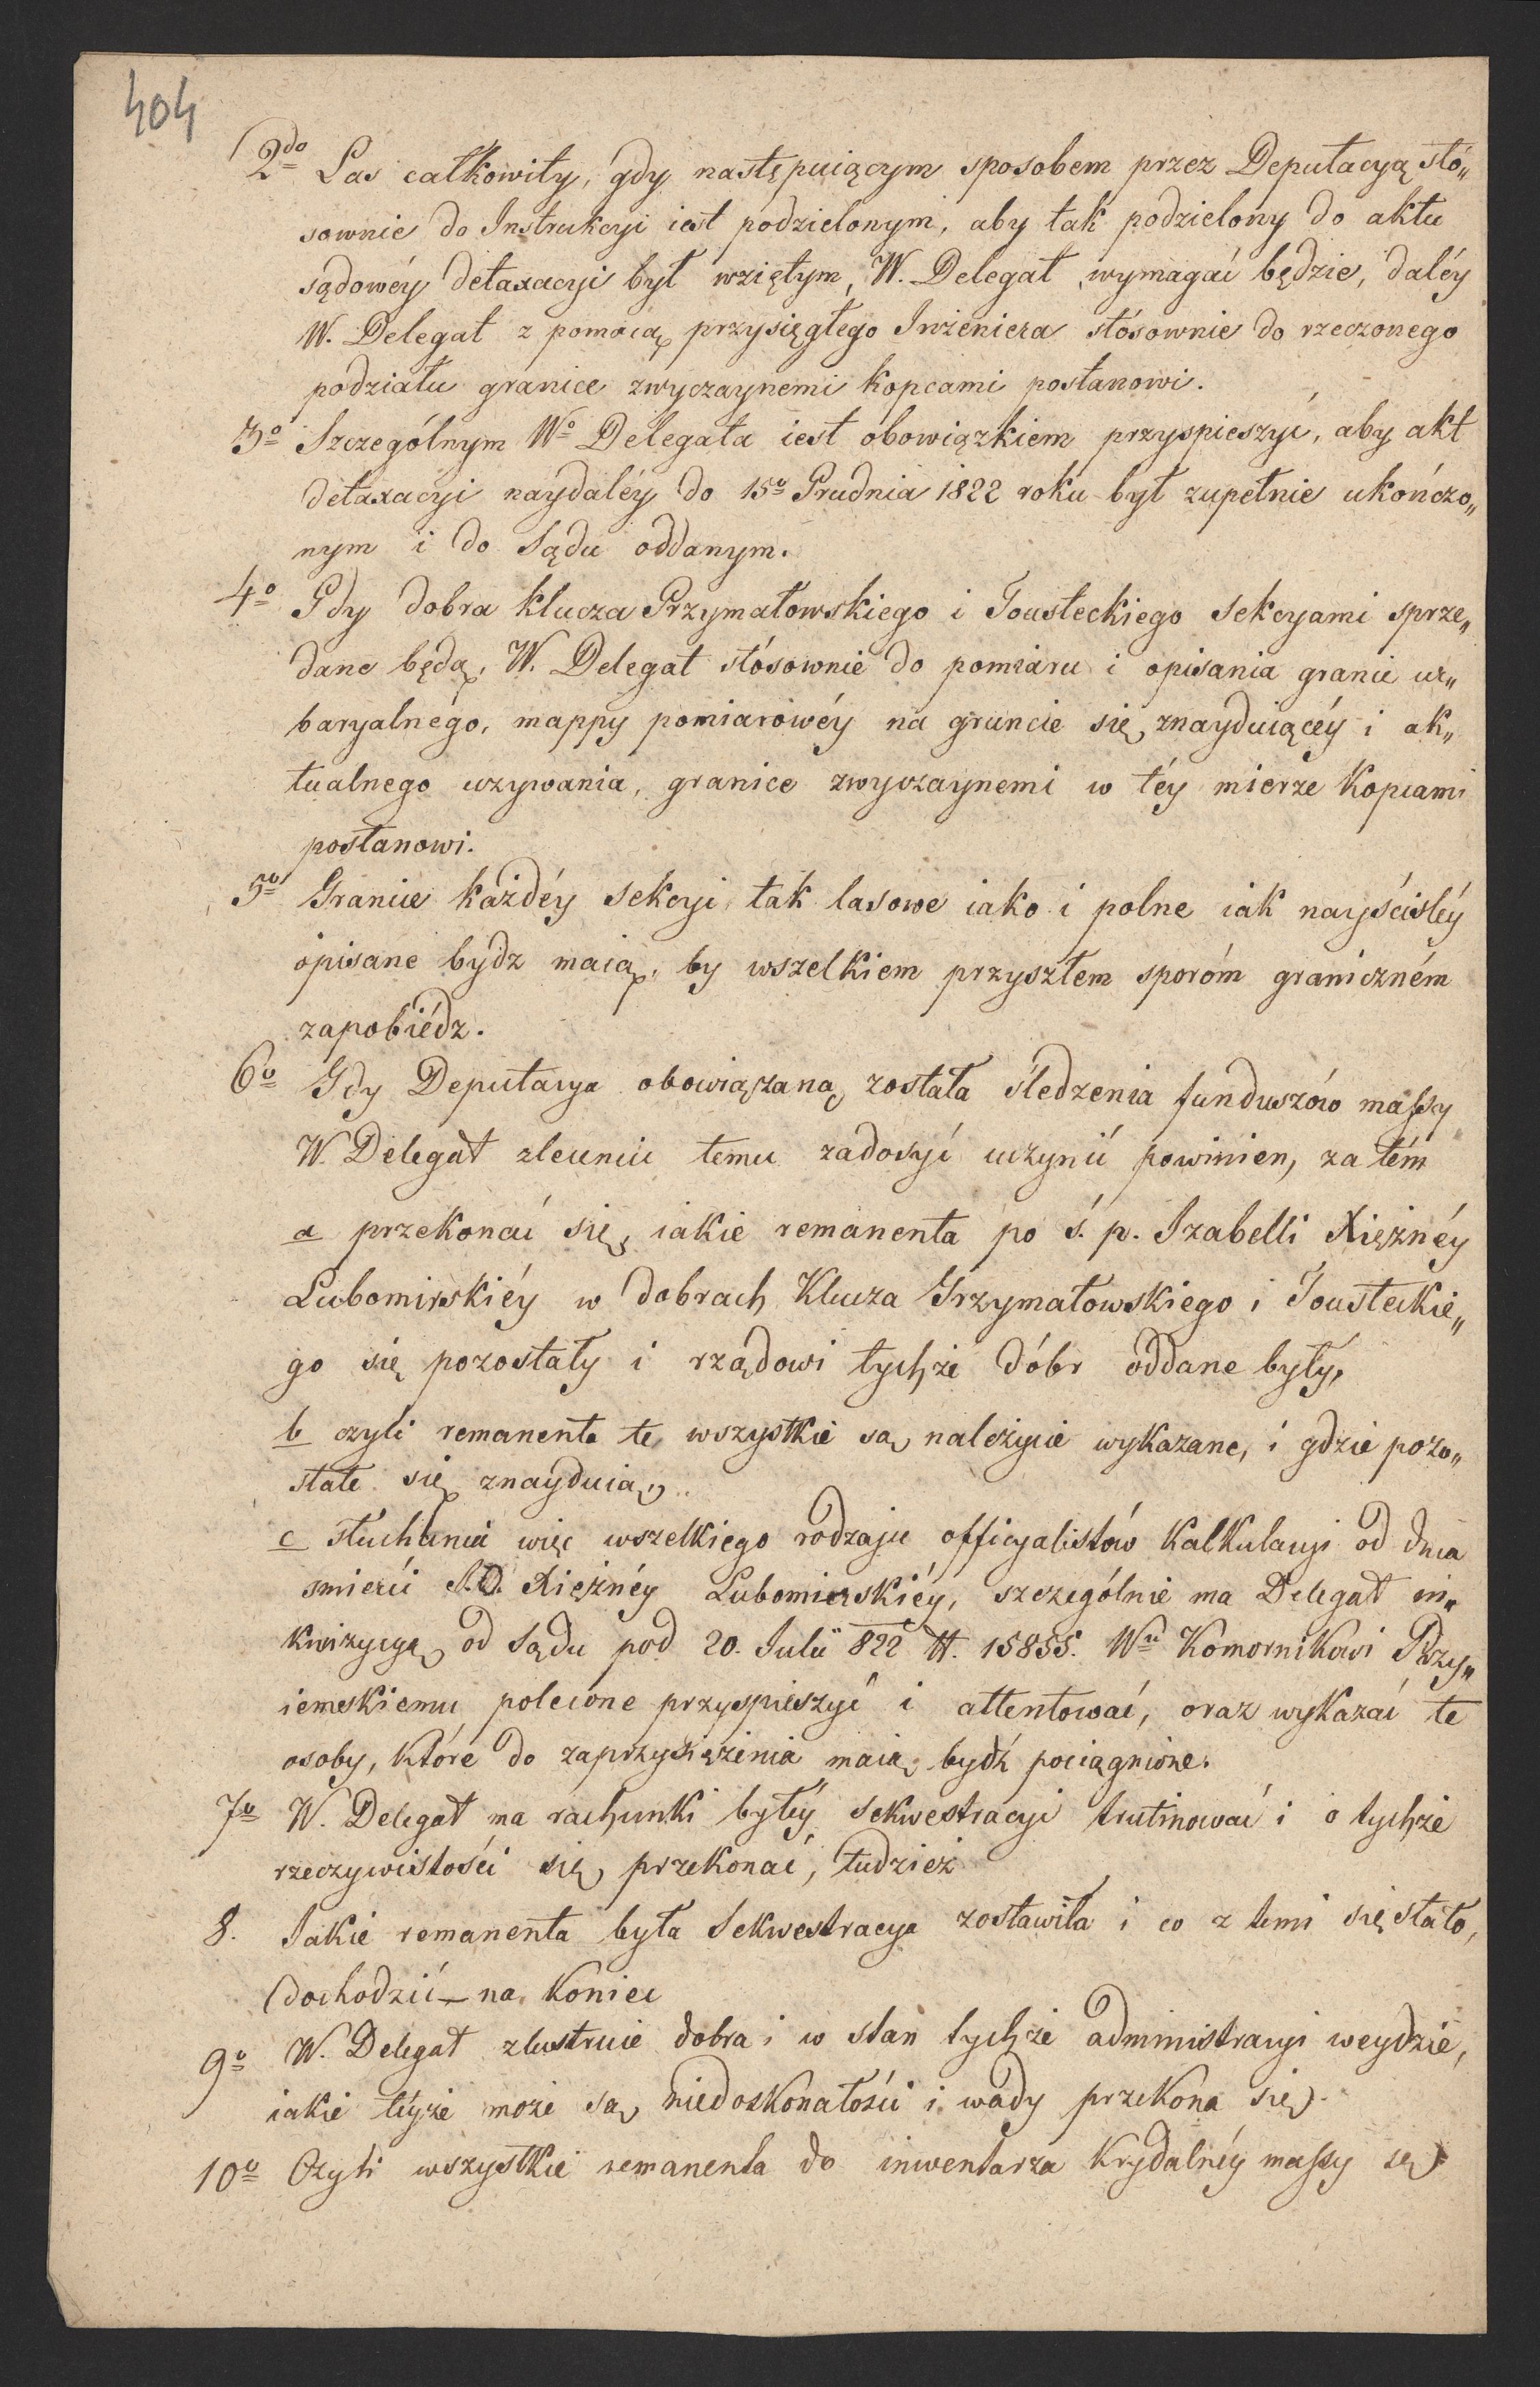 404
2do Las całkowity, gdy następuiącym sposobem przez Deputacyą stó„
sownie do Instrukcyi iest podzielonym, aby tak podzielony do aktu
sądowéy detaxacyi był wziętym, W. Delegat wymagać będzie, daléy
W. Delegat z pomocą przysięgłego Inżeniera stósownie do rzeczonego
podziału granice zwyczaynemi kopcami postanowi.
3o Szczególnym Wo Delegata iest obowiązkiem przyspieszyć, aby akt
detaxacyi naydaléy do 15o Grudnia 1822 roku był zupełnie ukończo„
nym i do Sądu oddanym.
4o Gdy dobra klucza Grzymałowskiego i Tousteckiego Sekcyami sprze„
dane będą, W. Delegat stósownie do pomiaru i opisania granic ur„
baryalnégo, mappy pomiarowéy na gruncie się znayduiącéy i ak„
tualnego uzywania, granice zwyczaynemi w téy mierze Kopcami
postanowi.
5o Granice każdéy Sekcyi tak lasowe iako i polne iak nayściśléy
opisane bydz maią, by wszelkiem przyszłem sporóm graniczném
zapobiédz.
6o Gdy Deputacya obowiązaną została śledzenia funduszów massy
W. Delegat zleceniu temu zadosyć uczynić powinien, za tém
a przekonać się, iakie remanenta po ś. p. Izabelli Xiężnéy
Lubomirskiéy w dobrach Klucza Grzymałowskiego i Tousteckie„
go się pozostały i rządowi tychże dóbr oddane były,
b czyli remanenta te wszystkie są należycie wykazane, i gdzie pozo„
stałe się znayduią,
c słuchania więc wszelkiego rodzaju officyalistów Kalkulacyi od dnia
smierci J.O. Xiężnéy Lubomirskiéy, szczególnie ma Delegat in„
kwizycyą od Sądu pod 20. Julii 822 N. 15855. Wu Komornikowi Przy„
iemskiemu polecone przyspieszyć i attentować, oraz wykazać te
osoby, które do zaprzysiężenia maią bydź pociągnione.
7o W. Delegat ma rachunki byłéy Sekwestracyi trutinować i o tychże
rzeczywistości się przekonać, tudzież
8. Jakie remanenta była Sekwestracya zostawiła i co z temi się stało,
dochodzić – na koniec
9o W. Delegat zlustruie dobra i w stan tychże administracyi weydzie,
iakie téyże może są niedoskonałości i wady przekona się.
10o Czyli wszystkie remanenta do inwentarza Krydalnéy massy są